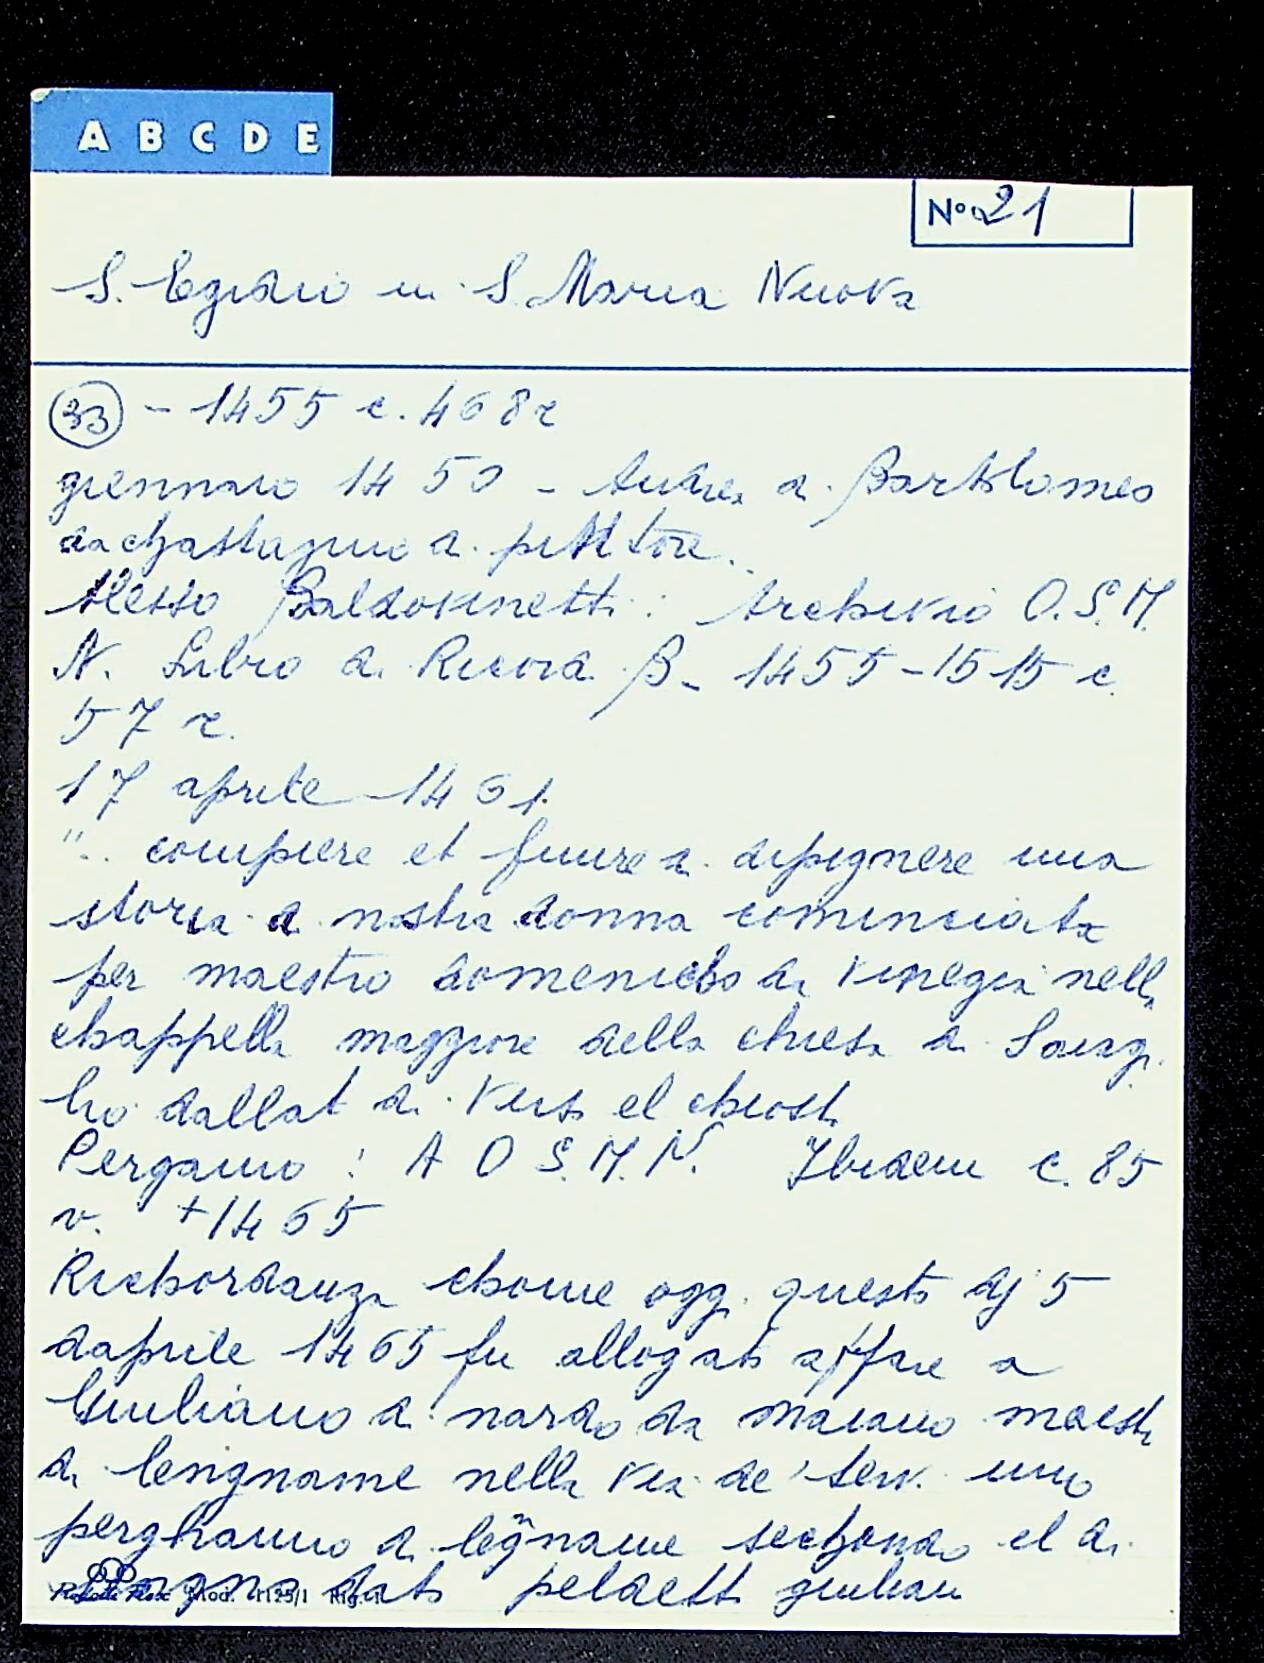 A B C D E
Nº 21
S. Egidio in S. Maria Nuova
33 - 1455 c. 468 r
giennaio 1450 - Andrea di Bartolomeo
da chastagnio di pittore..
Alesso Baldovinetti: Archivio O.S.M.
N. Libro di Ricordi B - 1455-1515 c.
57 r.
17 aprile 1461.
".. compiere et finire di dipignere una
storia di nostra donna cominciata
per maestro domenicho da Vinegia nella
chappella maggiore della chiesa di Sangi
lio dallato di verso el chiostro
Pergamo: A O S.M.N. Ibidem c. 85
v. + 1465
Richordanza chome oggi questo dj 5
daprile 1465 fu allogato affare a
Giuliano di nardo da maiano maestro
di lengname nella via de' Servi uno
perghamo di legname sechondo el di
segno dato peldetto giuliano
Mod. 1125/1 Rig. 1